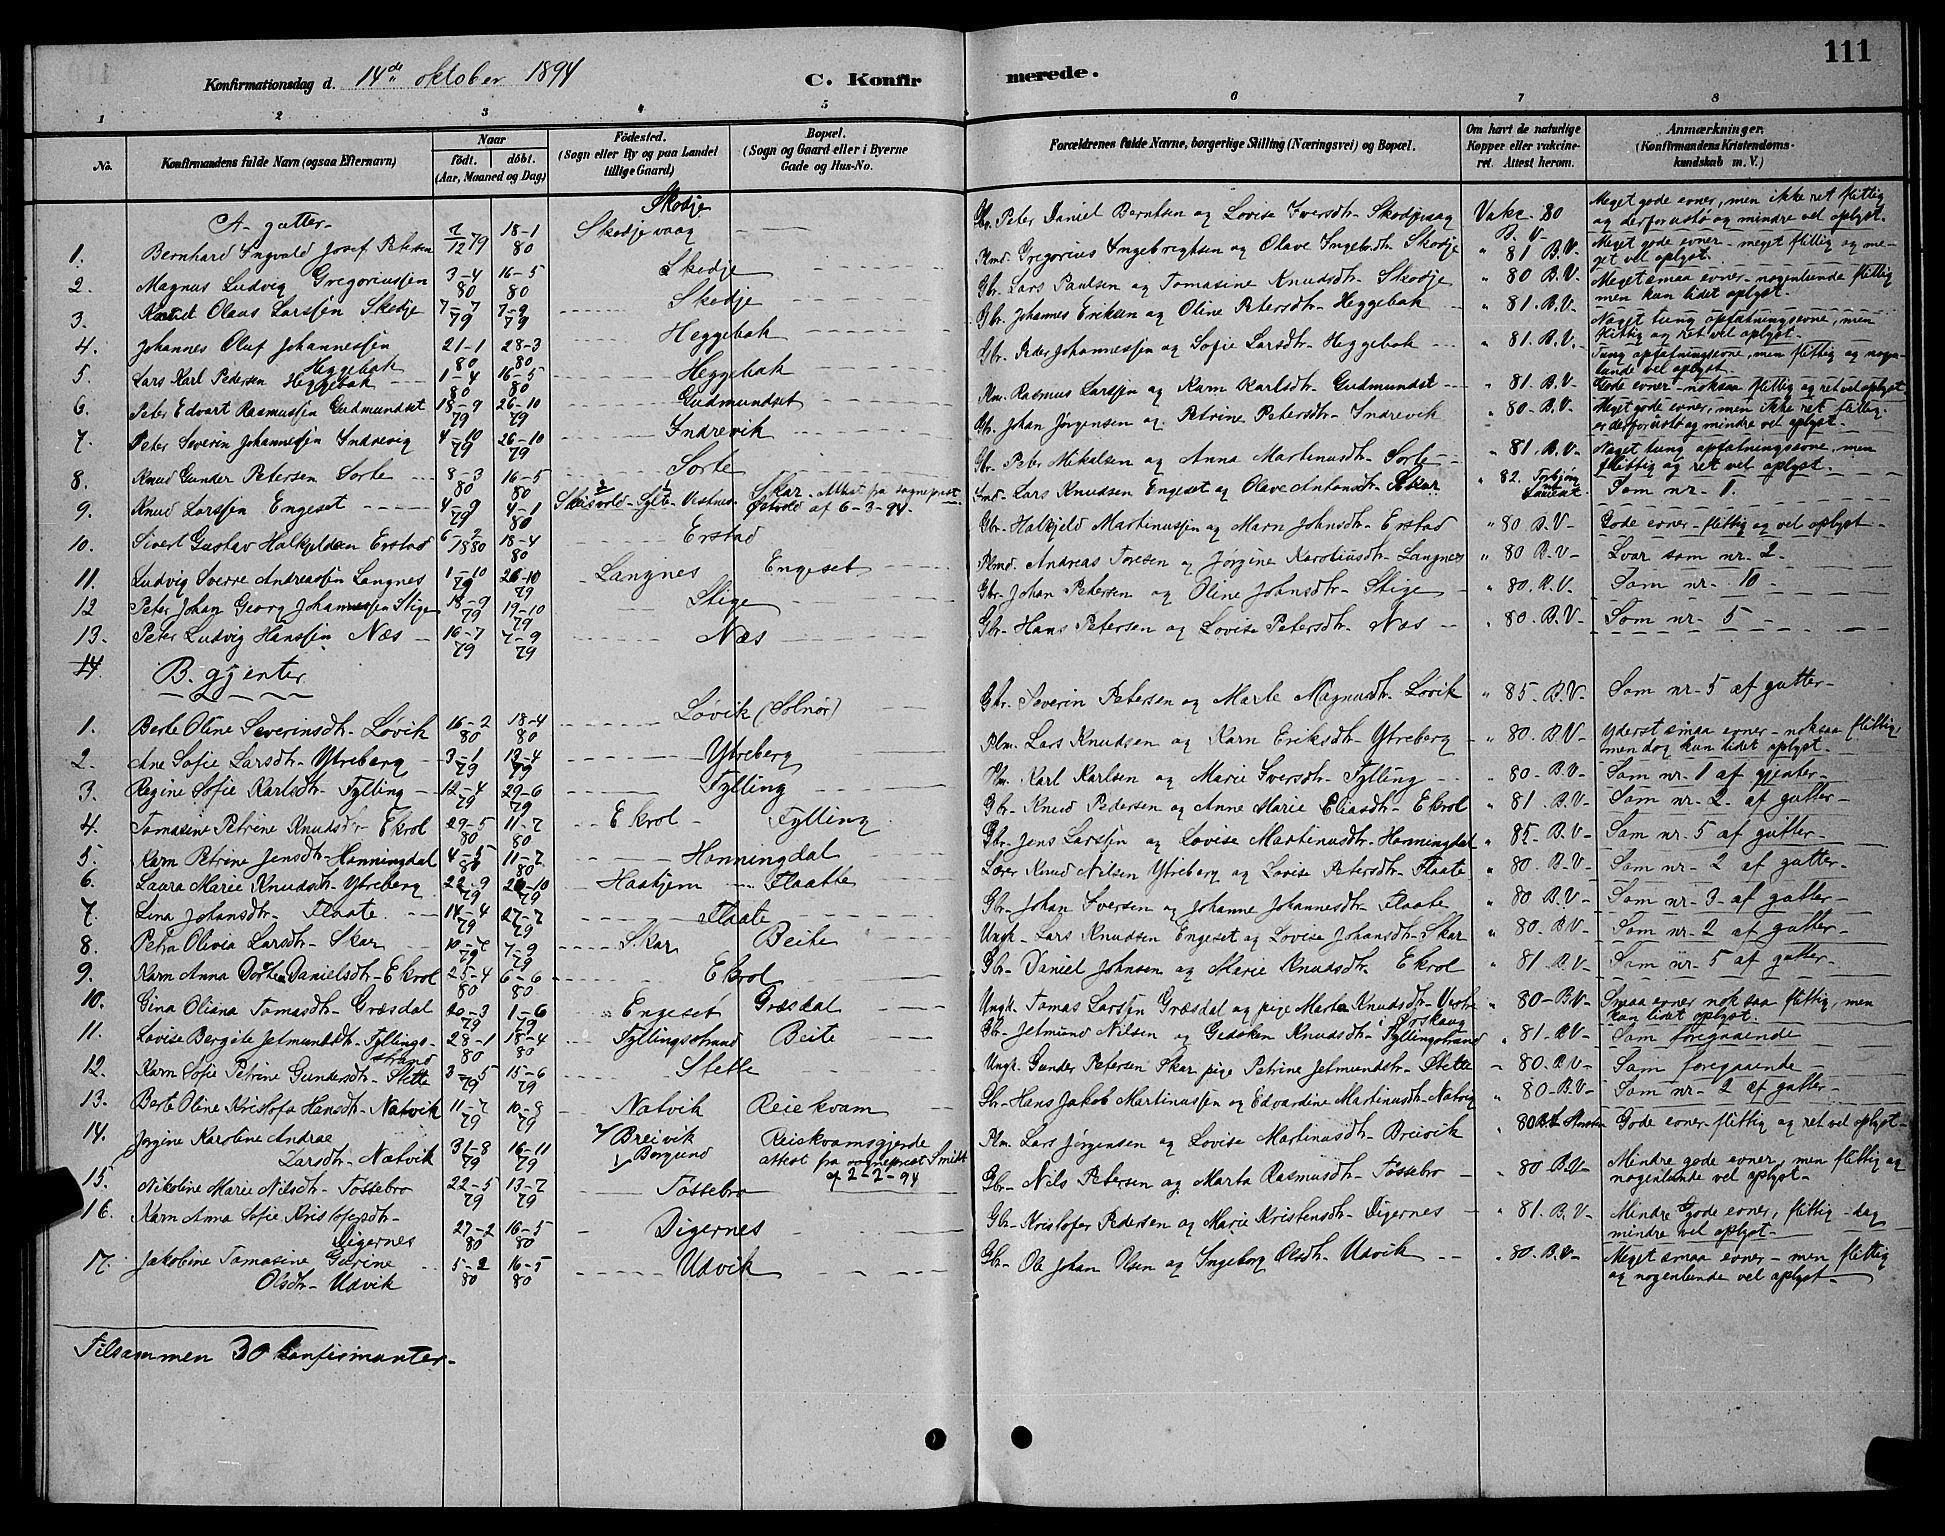 111
Konfirmationsdag d. 14de oktober 1894
C. Konfirmerede.
1 2 3 4 5 6 7 8
No.
Konfirmandens fulde Navn (ogsaa Efternavn)
Naar
født. døbt.
(Aar, Maaned og Dag)
Fødested.
(Sogn eller By og paa Landet
tillige Gaard)
Bopæl.
(Sogn og Gaard eller i Byerne
Gade og Hus-No.
Forældrenes fulde Navne, borgerlige Stilling (Næringsvei) og Bopæl.
Om havt de naturlige
Kopper eller vakcineret. Attest herom.
Anmærkninger.
(Konfirmandens Kristendomskundskab m. V.)
A- gutter-
1. Bernhard Ingvald Josef Petersen 7/12 79 18-1 80 Skodjevaag Skodje Gbr. Peter Daniel Berntsen og Lovise Iversdtr- Skodjevaag Vakc. 80 B. V. Meget gode evner, men ikke ret flittig
og derfor ustø og mindre vel oplyst.
2. Magnus Ludvig Gregoriussen 3-4 80 16-5 80 Skodje Plmd. Gregorius Ingebregtsen og Olave Ingebrdtr- Skodje " 81 B.V. Meget gode evner- meget flittig og meget vel oplyst.
3. Knud Olaus Larssen Skodje 7-7 79 7-9 79 Skodje Gbr. Lars Paulsen og Tomasine Knudsdtr- Skodje " 80 B.V. Meget smaa evner- nogenlunde flittig
men kun lidet oplyst.
4. Johannes Oluf Johannessen Heggebak 21-1 80 28-3 80 Heggebak Gbr. Johannes Eriksen og Oline Petersdtr- Heggebak " 81. B.V. Noget tung opfatningsevne, men
flittig og ret vel oplyst.
5. Lars Karl Pedersen Heggebak 1-4 80 16-5 80 Heggebak Gbr. Peder Johannessen og Sofie Larsdtr- Heggebak " 81. B.V. Tung opfatningsevne, men flittig og nogenlunde vel oplyst.
6. Peter Edvart Rasmussen Gudmundset 18-9 79 26-10 79 Gudmundset Plm. Rasmus Larssen og Karn Karlsdtr- Gudmundset " 81. B.V- Gode evner- noksaa flittig og ret vel oplyst
7. Peter Severin Johannessen Indrevig 4-10 79 26-10 79 Indrevik Gbr. Johan Jørgensen og Petrine Petersdtr- Indrevik " 80- B.V- Meget gode evner, men ikke ret flittig-
er derfor ustø og mindre vel oplyst.
8. Knud Gunder Petersen Sorte 8-3 80 16-5 80 Sorte Gbr- Peter Mikalsen og Anna Martinusdtr- Sorte " 81. B.V- Noget tung opfatningsevne, men
flittig og ret vel oplyst.
9. Knud Larssen Engeset 4-9 79 4-1 80 Skar- Attest fra sogneprest
Østvold af 6-3-94. Lars Knudsen Engeset og Olave Antonsdtr- Skar " 82. Som nr- 1.
10. Sivert Gustav Halkjeldsen Erstad 6-2 1880 18-4 80 Erstad Gbr- Halkjeld Martinussen og Marn Johnsdtr- Erstad " 80 B.V- Gode evner- flittig og vel oplyst-
11. Ludvig Sverre Andreassen Langnes 1-10 79 26-10 79 Langnes Engeset Plmd. Andreas Toresen og Jørgine Karoliusdtr- Langnes " 80 B.V- Svar som nr- 2-
12 Peter Johan Georg Johannessen Stige 18-9 79 19-10 79 Stige Gbr- Johan Petersen og Oline Johnsdtr- Stige " 80. B.V. Som nr- 10
13. Peter Ludvig Hanssen Næs 16-7 79 7-9 79 Næs Gbr- Hans Petersen og Lovise Petersdtr- Næs " 80. B.V- Som nr- 5
14. B. gjenter.
1. Berte Oline Severinsdtr- Løvik 16-2 80 18-4 80 Løvik (Solnør) Gbr. Severin Petersen og Marte Magnusdtr- Løvik " 85. B.V- Som nr- 5 af gutter-
2. Ane Sofie Larsdtr- Ytreberg 3-1 79 13-4 79 Ytreberg Plm. Lars Knudsen og Karn Eriksdtr- Ytreberg " 80. B.V- Yderst smaa evner- noksaa flittig,
men dog kun lidet oplyst-
3. Regine Sofie Karlsdtr- Fylling 12-4 79 29-6 79 Fylling Plm. Karl Karlsen og Marie Iversdtr- Fylling " 80- B.V- Som nr- 1 af gjenter-
4. Tomasine Petrine Knudsdtr- Ekrol 29-5 80 11-7 80 Ekrol Fylling Gbr- Knud Pedersen og Anne Marie Eliasdtr- Ekrol " 81. B.V- Som nr- 2- af gutter-
5. Karn Petrine Jensdtr- Honningdal 4-5 80 11-7 80 Honningdal Gbr- Jens Larssen og Lovise Martinusdtr- Honningdal " 85- B.V- Som nr- 5 af gutter-
6. Laura Marie Knudsdtr- Ytreberg 22-9 79 26-10 79 Haakjem Flaatte Lærer Knud Nilsen Ytreberg og Lovise Petersdtr- Flaate " 80. B.V- Som nr- 2 af gutter-
7. Lina Johansdtr- Flaate 14-4 79 27-7 79 Flaate Gbr- Johan Iversen og Johanne Johannesdtr- Flaate " 80 B.V- Som nr- 3- af gutter-
8. Petra Olivia Larsdtr- Skar 10-7 79 7-9 79 Skar Beite Ungk- Lars Knudsen Engeset og Lovise Johansdtr- Skar " 80- B.V- Som nr- 2 af gutter-
9. Karn Anna Dorthea Danielsdtr- Ekrol 25-4 80 6-6 80 Ekrol Gbr- Daniel Johnsen og Marie Knudsdtr- Ekrol " 81. B.V- Som nr- 5 af gutter-
10. Gina Oliana Tomasdtr- Græsdal 20-3 79 1-6 79 Engeset Græsdal Ungk. Tomas Larsen Græsdal og pige Marte Knudsdtr- i Ørskoug " 80-B.V- Smaa evner nok saa flittig, men
kun lidet oplyst.
11. Lovise Bergite Jetmundsdtr- Fyllingsstrand 28-1 80 18-4 80 Fyllingsstrand Beite Gbr- Jetmund Nilsen og Gedsken Knudsdtr- Fyllingstrand " 81- B.V- Som foregaaende
12. Karn Sofie Petrine Gundersdtr- Stette 3-5 79 15-6 79 Stette Ungk. Gunder Petersen Skar pige Petrine Jetmundsdtr- Stette " 80. B.V- Som foregaaende
13. Berte Oline Kristofa Hansdtr- Natvik 11-7 79 10-8 79 Natvik Reiekvam Gbr- Hans Jakob Martinussen og Edvardine Martinusdtr- Natvig " 80- B.V- Som nr- 2 af gutter-
14. Jørgine Karoline Andrae
Larsdtr- Natvik 31-8 79 16-11 79 Breivik
Borgund Reiskvamsgjerde
attest fra sogneprest Smitt
af 2-2-94 Plm. Lars Jørgensen og Lovise Martinusdtr- Breivik " 80 Gode evner- flittig og ret vel oplyst-
15. Nikoline Marie Nilsdtr- Tossebro 22-5 79 13-7 79 Tossebro Gbr- Nils Petersen og Marta Rasmusdtr- Tossebro " 80 B.V- Mindre gode evner, men flittig og
nogenlunde vel oplyst-
16. Karn Anna Sofie Kristofersdtr-
Digernes 27-2 80 16-5 80 Digernes Gbr- Kristofer Pedersen og Marie Kristensdtr- Digernes " 81. B.V- Mindre gode evner, flittig- dog
mindre vel oplyst-
17. Jakobine Tomasine Gærine
Olsdtr- Udvik 5-2 80 16-5 80 Udvik Gbr- Ole Johan Olsen og Ingeborg Olsdtr- Udvik " 80. B.V- Meget smaa evner- men flittig
og nogenlunde vel oplyst-
Tilsammen 30 konfirmanter-